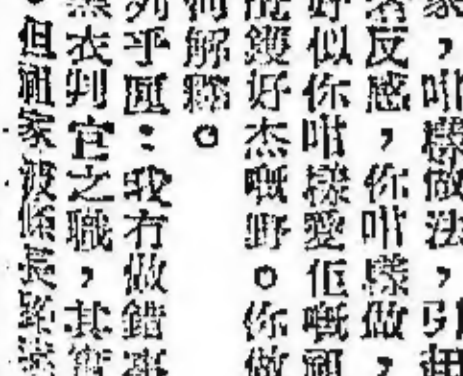 家，咁樣做法，引
反感，你咁樣做，
好似你咁樣愛佢嘅
鑊好杰嘅野。你做
何解釋。
列乎匪：我冇做錯事
衣判官之職，其實
但祖家被係長